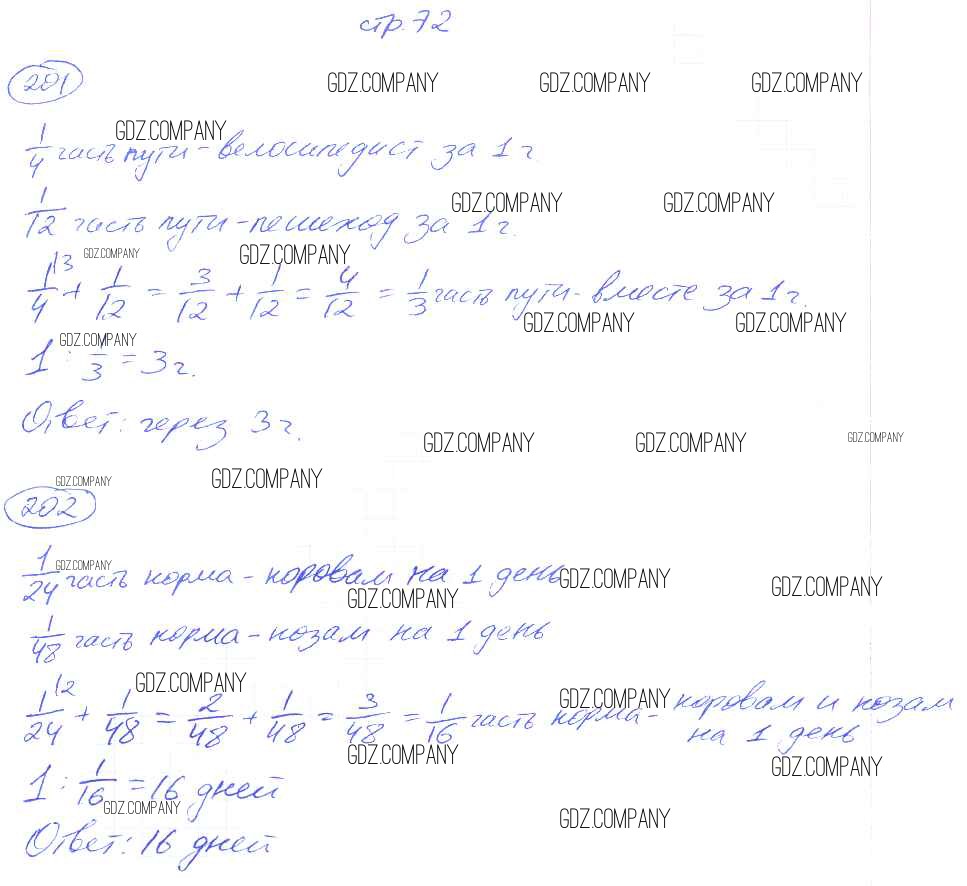 стр. 72
201
GDZ.COMPANY GDZ.COMPANY GDZ.COMPANY
GDZ.COMPANY
1/4 часть пути - велосипедист за 1 ч.
GDZ.COMPANY GDZ.COMPANY
1/12 часть пути - пешеход за 1 ч.
GDZ.COMPANY GDZ.COMPANY
1/4 |3 + 1/12 = 3/12 + 1/12 = 4/12 = 1/3 часть пути - вместе за 1 ч.
GDZ.COMPANY GDZ.COMPANY
GDZ.COMPANY
1 : 1/3 = 3 ч.
Ответ: через 3 ч.
GDZ.COMPANY GDZ.COMPANY GDZ.COMPANY
GDZ.COMPANY GDZ.COMPANY
202
GDZ.COMPANY
1/24 часть корма - коровам на 1 день
GDZ.COMPANY GDZ.COMPANY
GDZ.COMPANY
1/48 часть корма - козам на 1 день
GDZ.COMPANY GDZ.COMPANY
1/24 |2 + 1/48 = 2/48 + 1/48 = 3/48 = 1/16 часть корма - коровам и козам
на 1 день
GDZ.COMPANY GDZ.COMPANY
1 : 1/16 = 16 дней
GDZ.COMPANY GDZ.COMPANY
Ответ: 16 дней